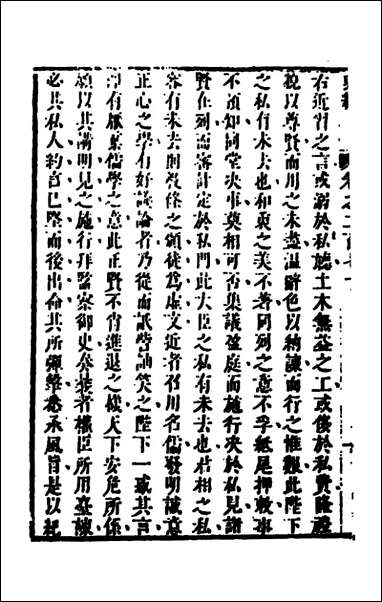 右近習之言或溺於私聽土木無益之工或侈於私費隆禮
貌以尊賢而用之未盡溫辭色以納諫而行之惟艱此陛下
之私有未去也和衷之美不著同列之意不孚紙尾押敕事
不預知同堂決事莫相可否集議盈庭而施行決於私見諸
賢在列而密計定於私門此大臣之私有未去也君相之私
容有未去則教條之頒徒為虛文近者召用名儒發明誠意
正心之學有好議論者乃從而詆訾訕笑之陛下一惑其言
即有厭棄儒學之意此正賢不肖進退之機天下安危所係
願以其講明見之施行拜監察御史奏曩者權臣所用臺諫
必其私人約言已堅而後出命其所彈擊悉承風旨是以紀